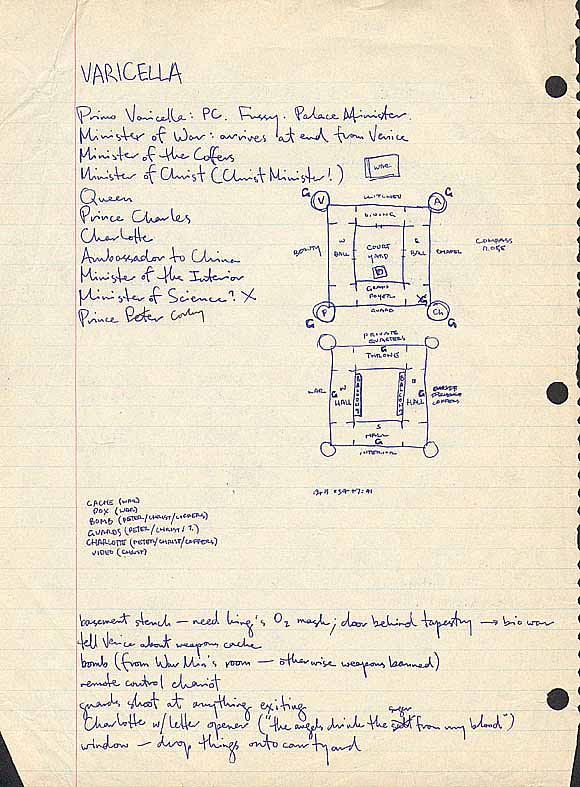 VARICELLA
Primo Varicella: PC. Fussy. Palace Minister.
Minister of War: arrives at end from Venice
Minister of the Coffers
Minister of Christ (Christ Minister!)
Queen
Prince Charles
Charlotte
Ambassador to China
Minister of the Interior
Minister of Science? X
Prince Peter
WAR
G
V
KITCHEN
A
G
DINING
BOUNTY
W BALL
COURT YARD
E BALL
CHAPEL
COMPASS ROSE
GRAND FOYER
P
GUARD
Ch
G
G
PRIVATE QUARTERS
G
THRONE
WAR
W
G
HALL
BALCONY
BALCONY
G
HALL
G
COFFERS
S
HALL
G
INTERIOR
CACHE (WAR)
POX (WAR)
BOMB (PETER/CHRIST/COFFERS)
GUARDS (PETER/CHRIST/?)
CHARLOTTE (PETER/CHRIST/COFFERS)
VIDEO (CHRIST)
basement stench — need king's O2 mask; door behind tapestry → bio war
tell Venice about weapons cache
bomb (from War Min's room — otherwise weapons banned)
remote control chariot
guards shoot at anything exiting
sugar
Charlotte w/ letter opener ("the angels drink the salt from my blood")
window — drop things onto courtyard